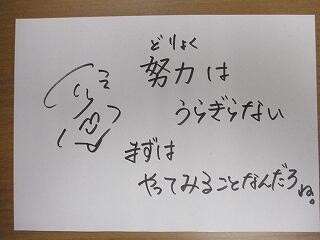 どりょく
努力は
うらぎらない
まずは
やってみることなんだろね。